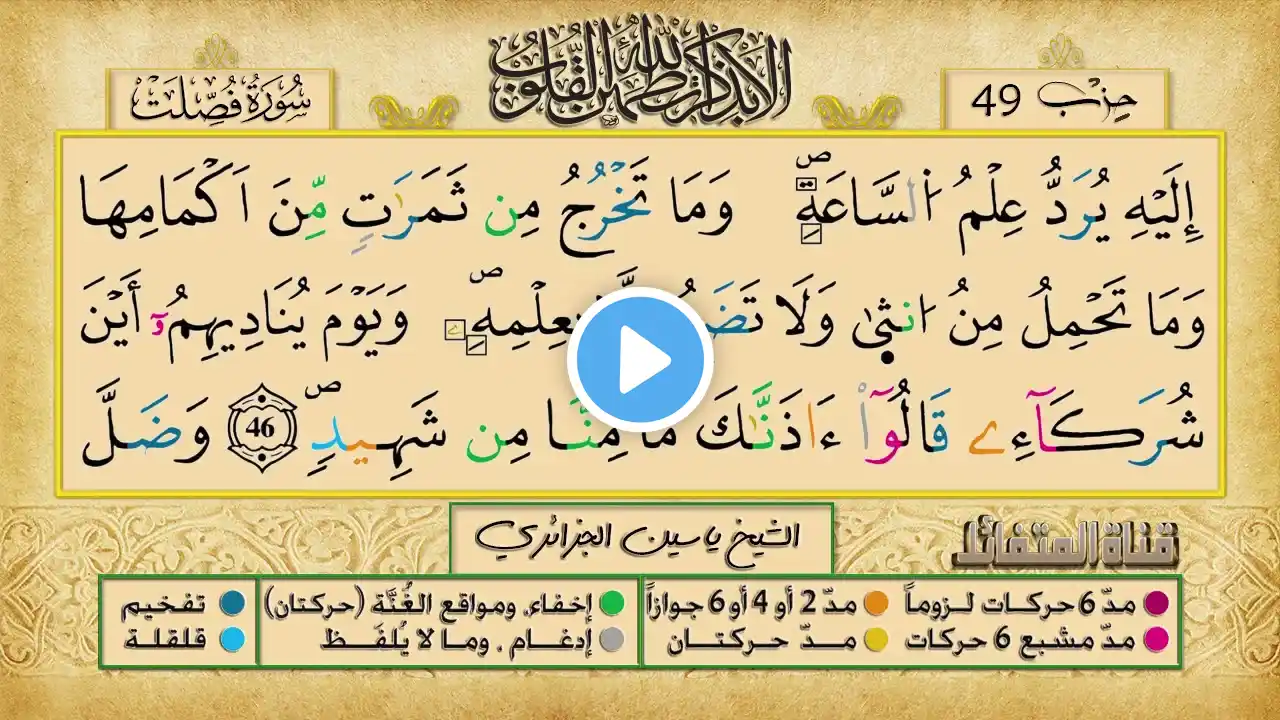 ألا بذكر الله تطمئن القلوب
حِزْب 49
سُورَةُ فُصِّلَتْ
إِلَيْهِ يُرَدُّ عِلْمُ اُ۬لسَّاعَةِۖ وَمَا تَخْرُجُ مِن ثَمَرَٰتٖ مِّنَ اَكْمَامِهَا
وَمَا تَحْمِلُ مِنُ ا۟نث۪ىٰ وَلَا بِعِلْمِهِۦۖ وَيَوْمَ يُنَادِيهِمُۥٓ أَيْنَ
شُرَكَآءِے قَالُوٓاْ ءَاذَنَّٰكَ مَا مِنَّا مِن شَهِيدٖۖ 46 وَضَلَّ
الشيخ ياسين الجزائري
قناة المتفائل
مدّ 6 حركات لـزوماً مدّ 2 أو 4 أو 6 جوازاً إخفاء، ومواقع الغُنَّة (حركتان) تفخيم
مدّ مشبع 6 حركات مــدّ حــركـتــان إدغــام ، ومـا لا يُلفَـظ قلقلة